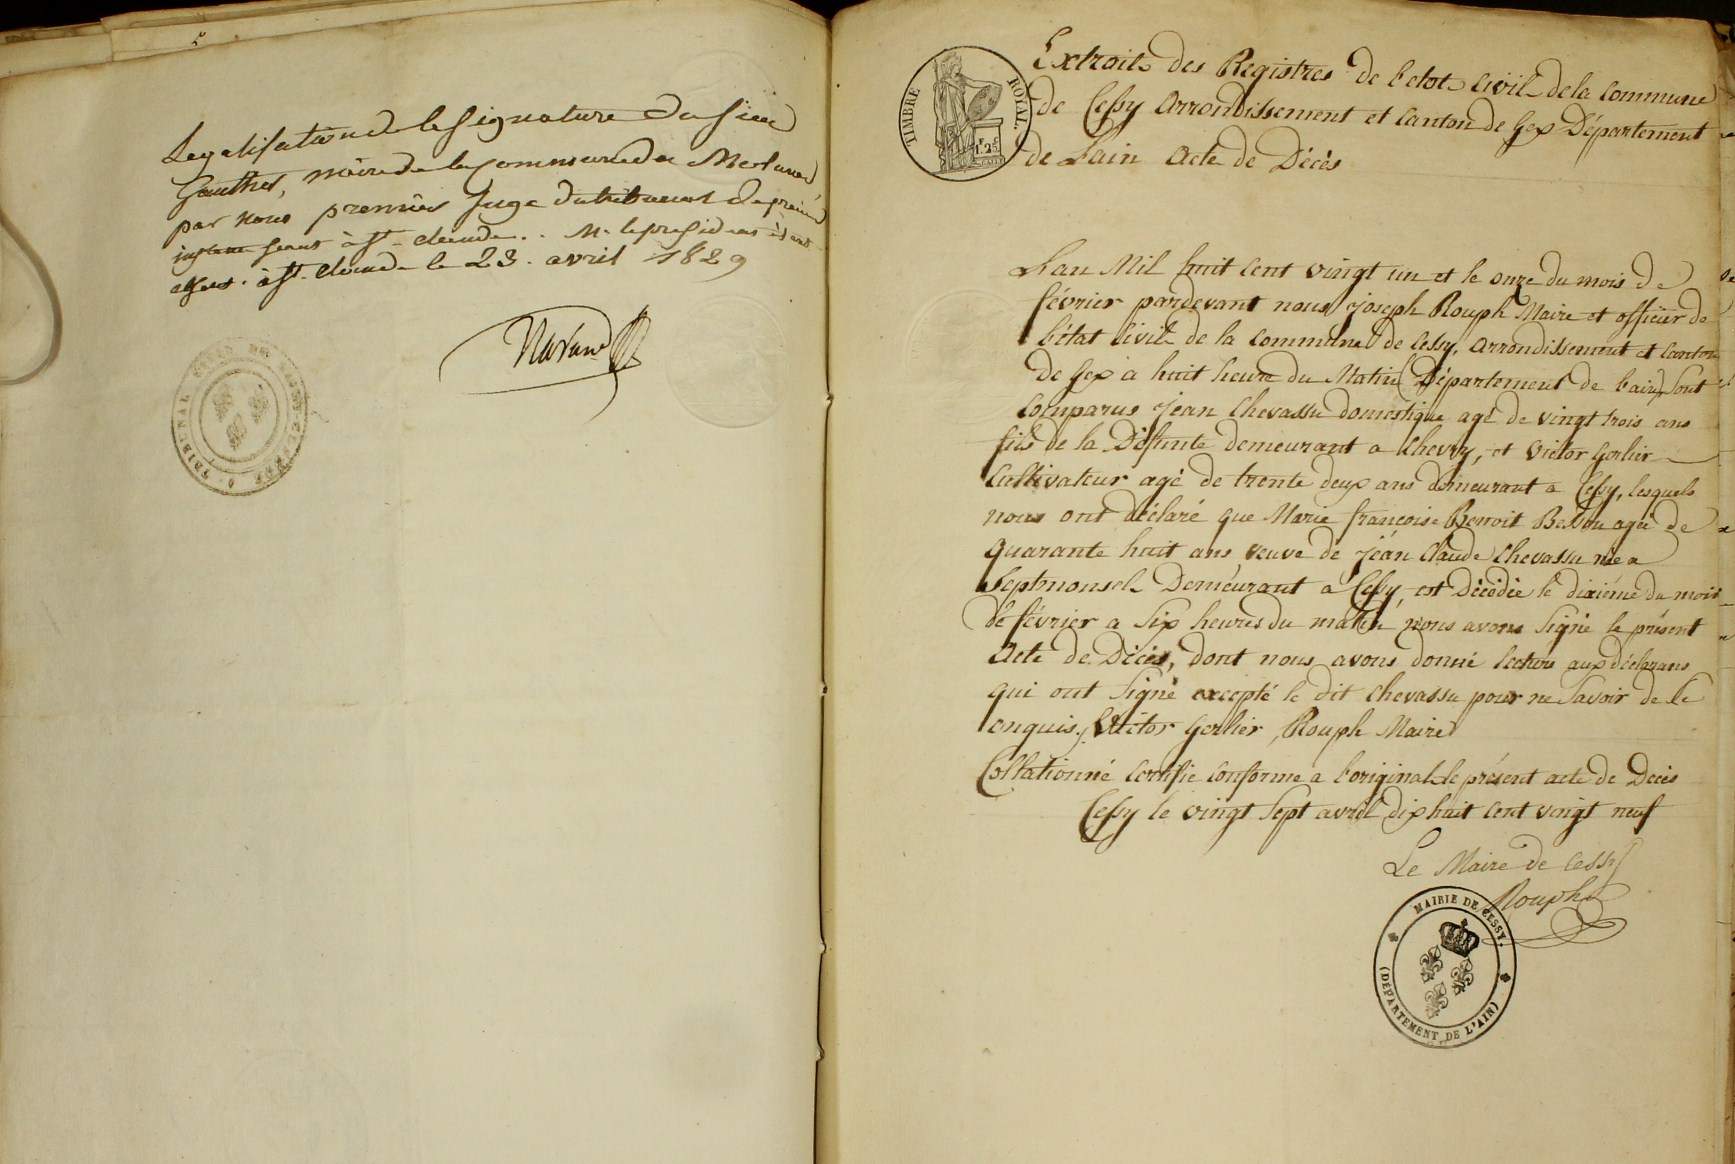 Legalisation de la signature du sieur
Gauthier, maire de la commune de
par nous premier juge du tribunal de premiere
instance seant à St. claude. M. le president
à St. Claude le 23. avril 1829
TRIBUNAL
TIMBRE ROYAL.
1F. 25C
Extrait des Registres de l'etat civil de la Commune
de Cessy arrondissement et canton de Gex Département
de Lain acte de Décès
L'an Mil huit cent vingt un et le onze du mois de
février pardevant nous joseph Rouph Maire et officier de
l'état civil de la commune de Cessy, arrondissement et canton
de Gex a huit heure du Matin (Département de l'ain) sont
comparus jean Chevassu domestique agé de vingt trois ans
fils de la Défunte demeurant a Chevry, et Victor Gerlier
Cultivateur agé de trente deux ans demeurant a Cessy, lesquels
nous ont déclaré que Marie françoise Benoit agée de
quarante huit ans veuve de jean Claude Chevassu née a
Septmonsel Demeurant a Cessy, est décédée le dixième du mois
de février a six heures du matin, nous avons signé le présent
acte de Décès, dont nous avons donné lecture aux déclarans
qui ont signé excepté le dit Chevassu pour ne savoir de ce
enquis, Victor Gerlier, Rouph Maire
Collationné certifie conforme a l'original le présent acte de Décès
Cessy le vingt sept avril dix huit cent vingt neuf
Le Maire de Cessy
Rouph
MAIRIE DE CESSY.
(DÉPARTEMENT DE L'AIN)